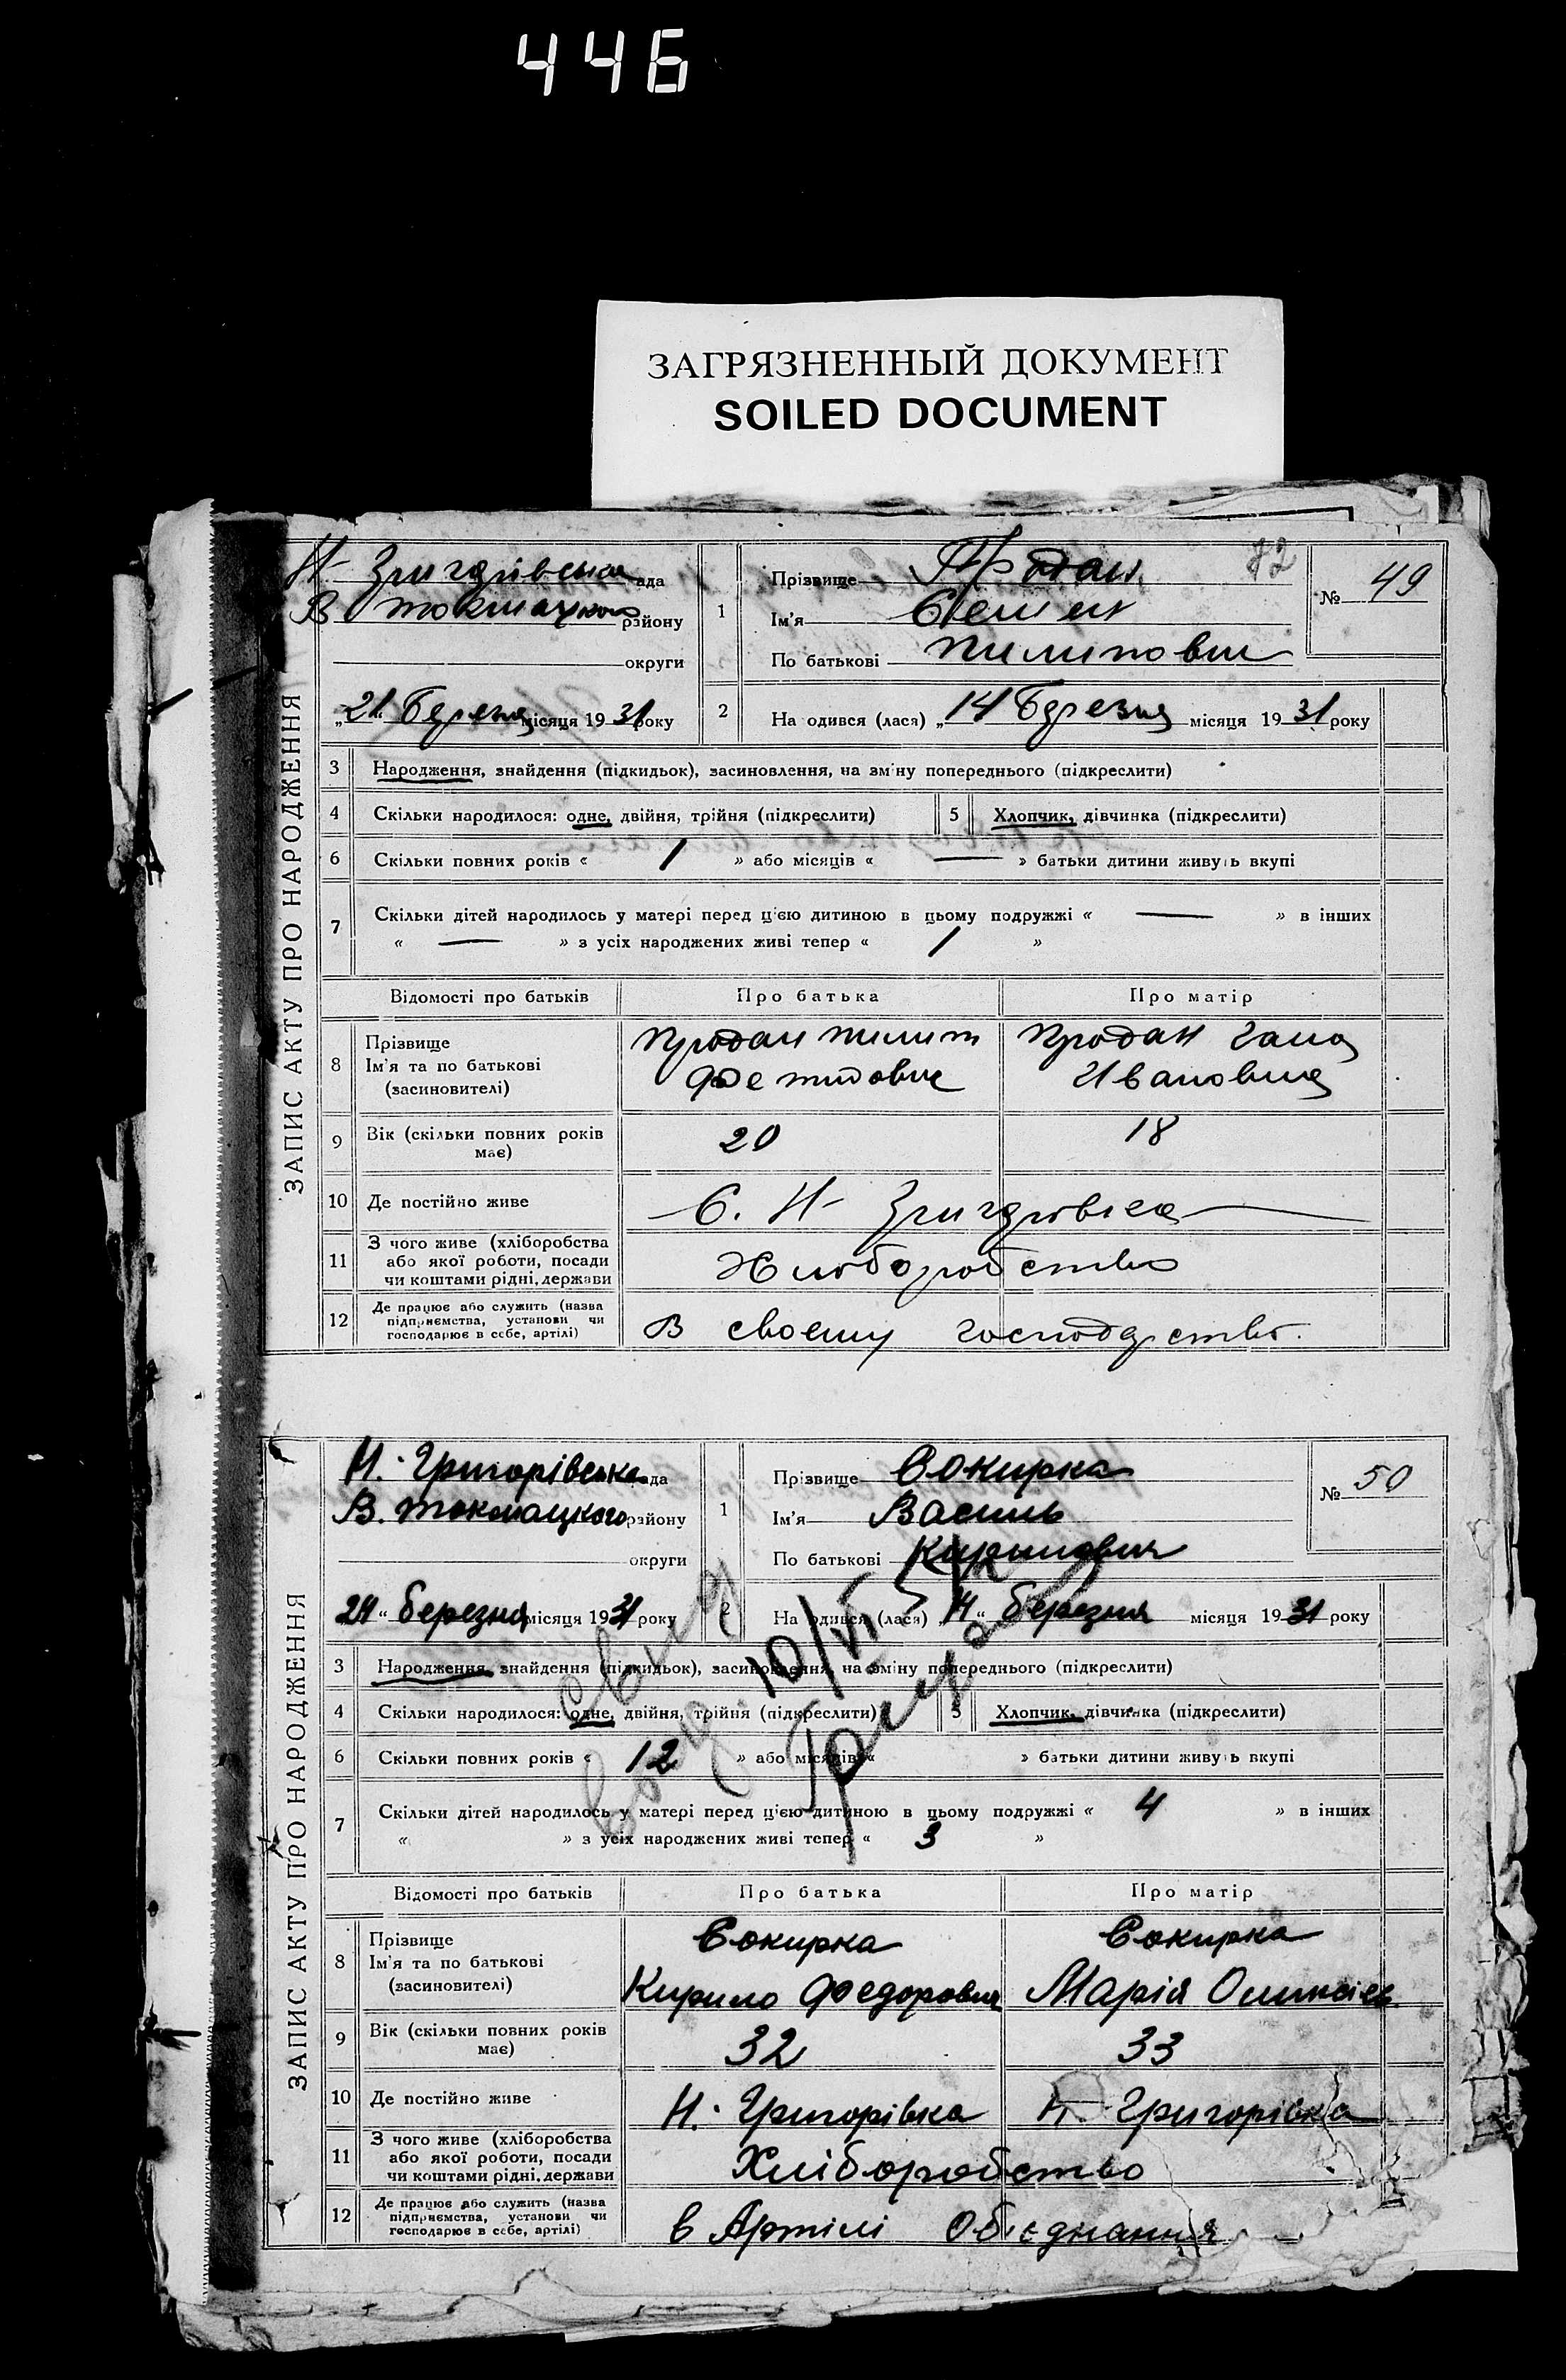 446
ЗАГРЯЗНЕННЫЙ ДОКУМЕНТ
SOILED DOCUMENT
ЗАПИС АКТУ ПРО НАРОДЖЕННЯ
Н- Григорівська ада
В Токмацького району
округи
„21“ Березня місяця 1931 року
72
1 Прізвище Продан
Ім'я Семен
По батькові Пилипович
№ 49
2 На одився (лася) „14 Березня місяця 1931 року
3 Народження, знайдення (підкидьок), засиновлення, на зміну попереднього (підкреслити)
4 Скільки народилося: одне, двійня, трійня (підкреслити) 5 Хлопчик, дівчинка (підкреслити)
6 Скільки повних років « 1 » або місяців « — » батьки дитини живуть вкупі
7 Скільки дітей народилось у матері перед цією дитиною в цьому подружжі « — » в інших
« — » з усіх народжених живі тепер « 1 »
Відомості про батьків Про батька Про матір
8 Прізвище
Ім'я та по батькові
(засиновителі)
Продан Пилип
Продан Гана
Ивановна
9 Вік (скільки повних років
має)
20 18
10 Де постійно живе С. Н- Григорівка
11 З чого живе (хліборобства
або якої роботи, посади
чи коштами рідні, держави
Хлюборобство
12 Де працює або служить (назва
підприємства, установи чи
господарює в себе, артілі)
В своему господарстві.
ЗАПИС АКТУ ПРО НАРОДЖЕННЯ
Н. Григорівська ада
В. Токмацького району
округи
24 “ березня місяця 1931 року
1 Прізвище Сокирка
Ім'я Василь
По батькові Кирилович
№ 50
2 На одився (лася) 14 “ березня місяця 1931 року
3 Народження, знайдення (підкидьок), засиновлення, на зміну попереднього (підкреслити)
4 Скільки народилося: одне, двійня, трійня (підкреслити) 5 Хлопчик, дівчинка (підкреслити)
6 Скільки повних років « 12 » або місяців « » батьки дитини живуть вкупі
7 Скільки дітей народилось у матері перед цією дитиною в цьому подружжі « 4 » в інших
« » з усіх народжених живі тепер « 3 »
10/VI
Відомості про батьків Про батька Про матір
8 Прізвище
Ім'я та по батькові
(засиновителі)
Сокирка
Кирило Федорович
Сокирка
Марія Оликсієв
9 Вік (скільки повних років
має)
32 33
10 Де постійно живе Н. Григорівка Н. Григорівка
11 З чого живе (хліборобства
або якої роботи, посади
чи коштами рідні, держави
Хліборобство
12 Де працює або служить (назва
підприємства, установи чи
господарює в себе, артілі)
в Артілі Об'єднання